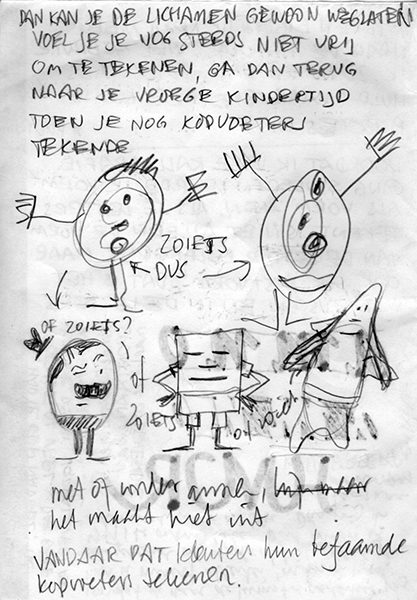 DAN KAN JE DE LICHAMEN GEWOON WEGLATEN
VOEL JE JE NOG STEEDS NIET VRIJ
OM TE TEKENEN, GA DAN TERUG
NAAR JE VROEGE KINDERTIJD
TOEN JE NOG KOPVOETERS
TEKENDE
ZOIETS
DUS
OF ZOIETS?
OF
ZOIETS
OF ZOIETS
met of zonder armen,
het maakt niet uit
VANDAAR DAT kleuters hun befaamde
kopvoeters tekenen.